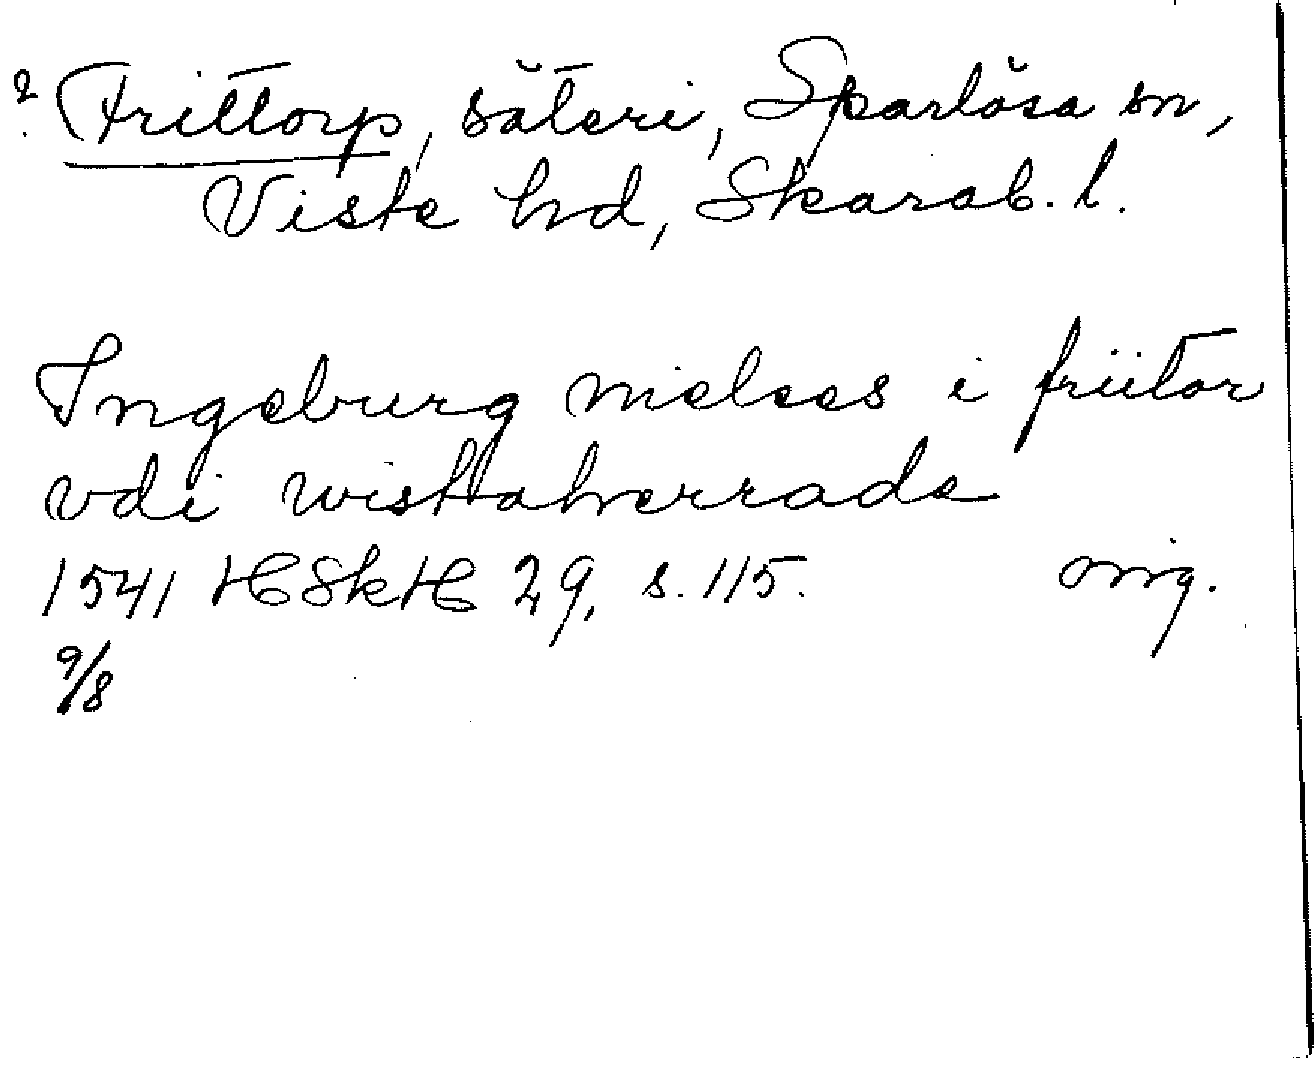 ? Frittorp, säteri, Sparlösa sn,
Viste hd, Skarab. l.
Ingeburg nielses i friitor
vdi wistaherrade
1541 HSkH 29, s. 115. orig.
9/8